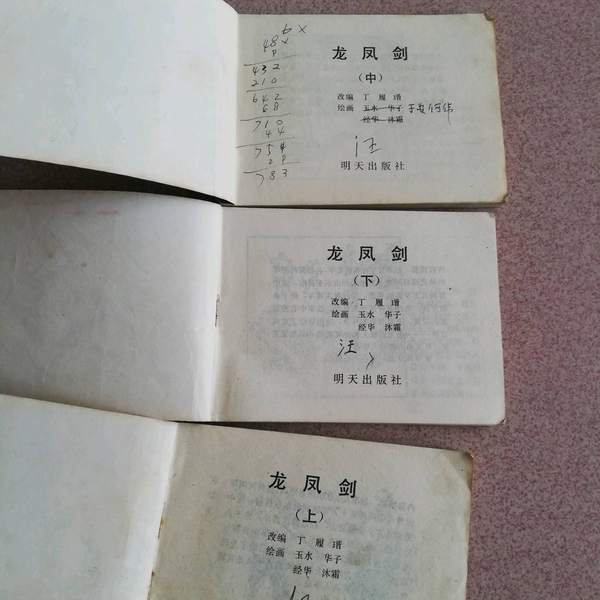 6 ×
48 ×
9
432
210
642
68
710
44
754
29
783
龙 凤 剑
（中）
改编 丁 履 瑨
绘画 玉水 华子
经华 沐霜
汪
明天出版社
龙 凤 剑
（下）
改编 丁 履 瑨
绘画 玉水 华子
经华 沐霜
汪
明天出版社
龙 凤 剑
（上）
改编 丁 履 瑨
绘画 玉水 华子
经华 沐霜